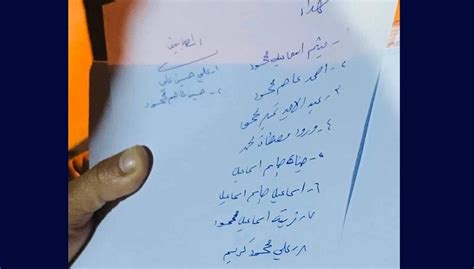 شهداء
١- ميثم اسماعيل محمود
٢- احمد عاصم محمود
٣- عبد الامير محمود
٤- ورود مصطفى محمد
٥- جاسم اسماعيل
٦- اسماعيل جاسم اسماعيل
٧- اسماعيل محمود
٨- علي محمود كريم
المصابين
١- علي حسين علي
٢- عاصم محمود